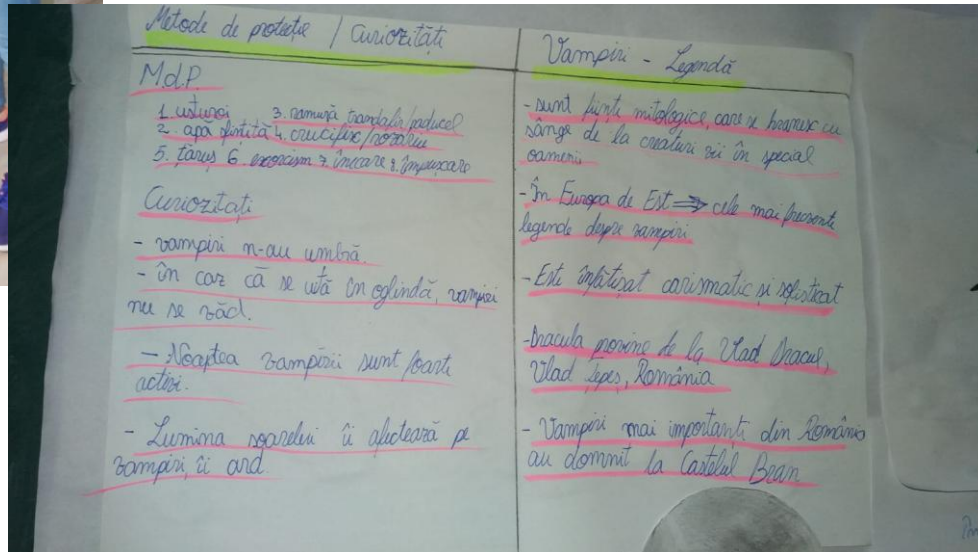 Metode de protecție / Curiozități
M.d.P.
1. usturoi 3. ramură trandafir/păducel
2. apă sfințită 4. crucifix/rozariu
5. țăruș 6. exorcism 7. înecare 8. împușcare
Curiozitați
- vampiri n-au umbră.
- în caz că se uită în oglindă, vampiri
nu se văd.
- Noaptea vampirii sunt foarte
activi.
- Lumina soarelui îi afectează pe
vampiri, îi ard.
Vampiri - Legendă
- sunt ființe mitologice, care se hrănesc cu
sânge de la creaturi vii în special
oameni
- În Europa de Est ⇒ cele mai frecvente
legende despre vampiri.
- Est înfățișat carismatic și sofisticat
- Dracula provine de la Vlad Dracul,
Vlad Țepeș, România
- Vampiri mai importanți din România
au domnit la Castelul Bran